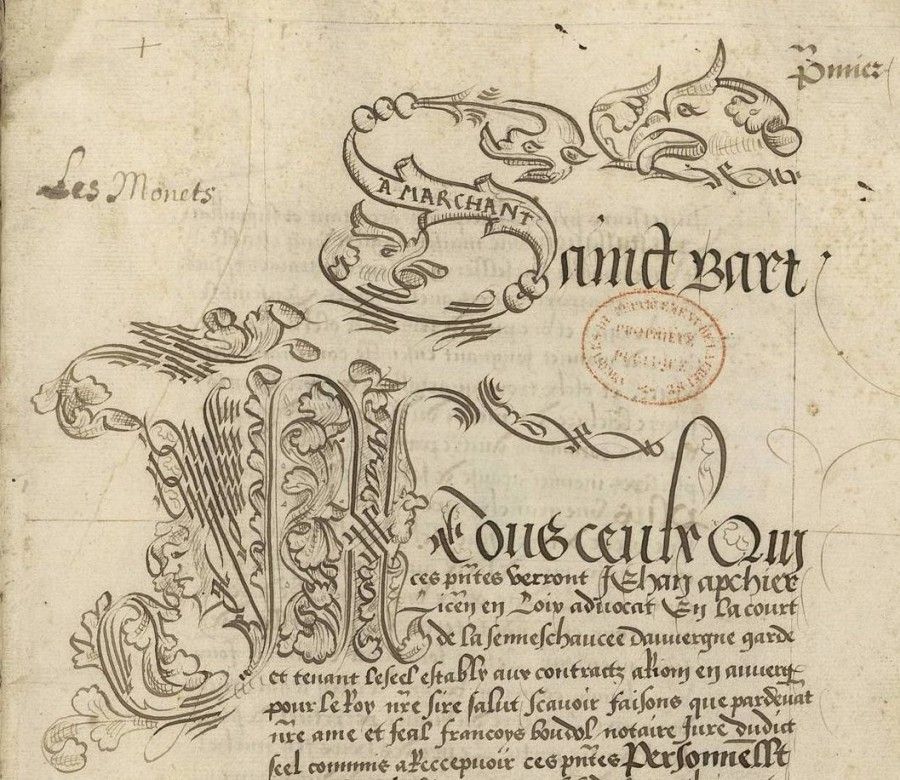 Pmier
Les Monets
A MARCHANT
Sainct Bart
PROPRIETE
PUBLIQUE
A Tous ceulx Qui
ces pñtes verront Jehan apchier
Licen en Loix advocat En la court
de la seneschaucee dauvergne garde
et tenant le seel establv aux contractz a Riom en auverg
pour le Roy nre sire salut scavoir faisons que pardevat
nre ame et feal francoys boudol notaire Jure dudict
seel commis a Recepuoir ces pñtes Personnellt